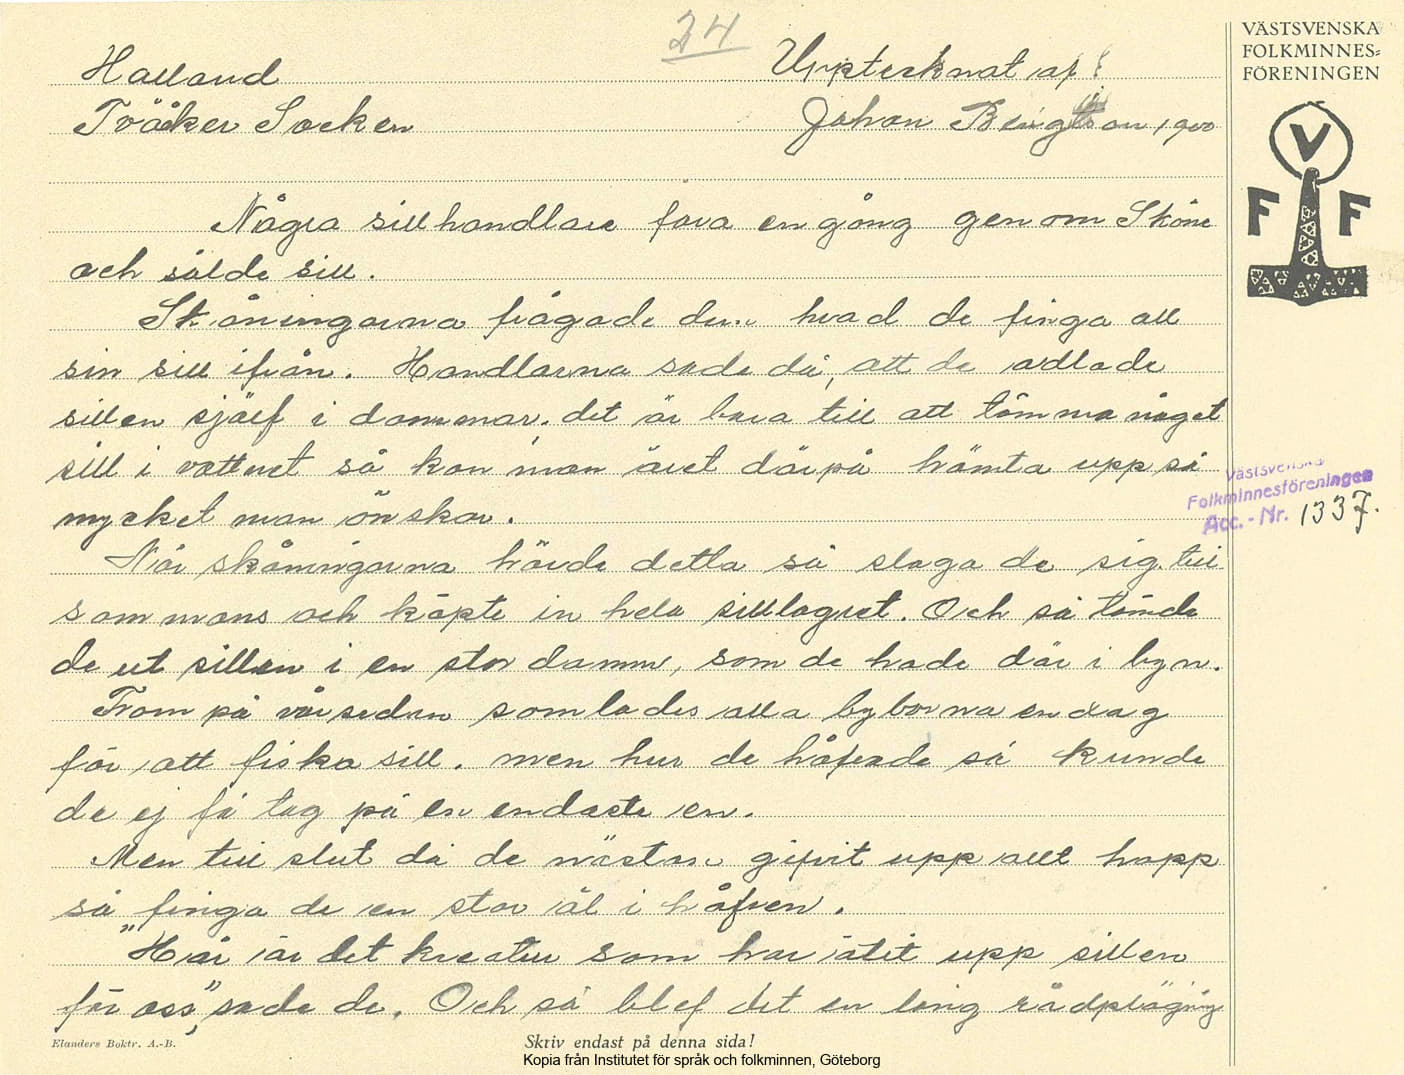 24
Halland
Uppteknat af
VÄSTSVENSKA
FOLKMINNES-
FÖRENINGEN
Tvååker Socken
Johan Bengtson 1900
V
F F
Några sillhandlare fora en gång genom Skåne
och sålde sill.
Skåningarna frågade dem hvad de finga all
sin sill ifrån. Handlarna sade då, att de odlade
sillen sjelf i dammar. det är bara till att tömma något
sill i vattnet så kan man året därpå hämta upp så
mycket man önskar.
När skåningarna hörde detta så sloga de sig till
sommans och köpte in hela sillagret. Och så tömde
de ut sillen i en stor damm, som de hade där i byn.
Fram på våren sedan samlades alla byborna en dag
för att fiska sill. men hur de håfvade så kunde
de ej få tag på en endaste en.
Men till slut då de nästan gifvit upp allt hopp
så finga de en stor ål i håfven.
"Här är det kreatur som har ätit upp sillen
för oss", sade de. Och så blef det en lång rådplägning
Västsvenska
Folkminnesföreningen
Acc.-Nr. 1337.
Elanders Boktr. A.-B.
Skriv endast på denna sida!
Kopia från Institutet för språk och folkminnen, Göteborg